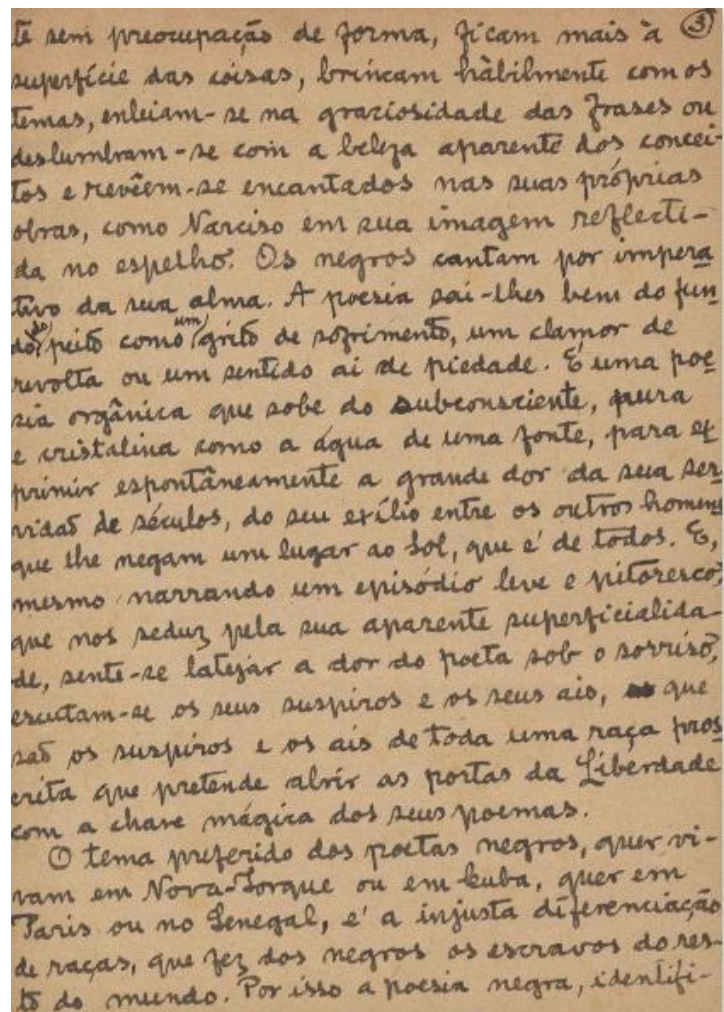 te sem preocupação de forma, ficam mais à ③
superfície das coisas, brincam hàbilmente com os
temas, enleiam-se na graciosidade das frases ou
deslumbram-se com a beleza aparente dos concei-
tos e revêem-se encantados nas suas próprias
obras, como Narciso em sua imagem reflecti-
da no espelho. Os negros cantam por impera
tivo da sua alma. A poesia sai-lhes bem do fun
do do peito como um grito de sofrimento, um clamor de
revolta ou um sentido ai de piedade. É uma poe
sia orgânica que sobe do subconsciente, pura
e cristalina como a água de uma fonte, para ex
primir espontâneamente a grande dor da sua ser
vidão de séculos, do seu exílio entre os outros homens
que lhe negam um lugar ao Sol, que é de todos. E,
mesmo narrando um episódio leve e pitoresco,
que nos seduz pela sua aparente superficialida-
de, sente-se latejar a dor do poeta sob o sorriso,
escutam-se os seus suspiros e os seus ais, que
são os suspiros e os ais de toda uma raça pros
crita que pretende abrir as portas da Liberdade
com a chave mágica dos seus poemas.
O tema preferido dos poetas negros, quer vi-
vam em Nova-Iorque ou em Cuba, quer em
Paris ou no Senegal, é a injusta diferenciação
de raças, que fez dos negros os escravos do res-
to do mundo. Por isso a poesia negra, identifi-